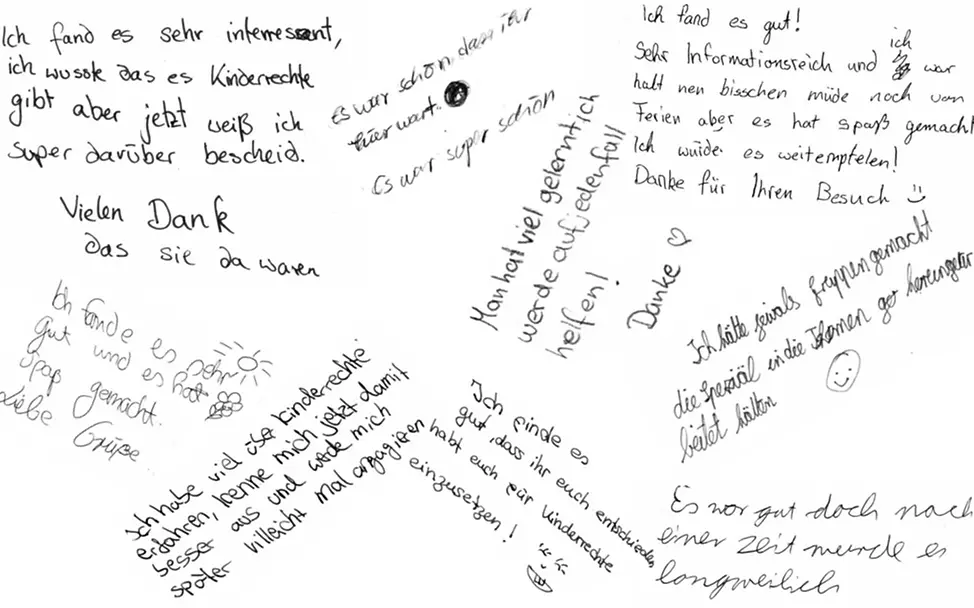 Ich fand es sehr interressant,
ich wusste das es Kinderrechte
gibt aber jetzt weiß ich
super darüber bescheid.
Vielen Dank
das sie da waren
Es war schön dass ihr
hier wart.
Es war super schön
Ich fand es gut!
Sehr Informationsreich und ich war
halt nen bisschen müde noch von
Ferien aber es hat spaß gemacht
Ich würde es weitempfelen!
Danke für Ihren Besuch
Man hat viel gelernt ich
werde auf jedenfall
helfen!
Danke
Ich hätte jewals gruppen gemacht
die speziäl in die Themen ger hereingear
beitet hätten
Ich fande es sehr
gut und es hat
Spaß gemacht.
Liebe Grüße
Ich habe viel über Kinderrechte
erfahren, kenne mich jetzt damit
besser aus und werde mich
villeicht mal angagieren
später
Ich finde es
gut, dass ihr euch entschieden
habt euch für Kinderrechte
einzusetzen!
Es war gut doch nach
einer Zeit wurde es
langweilich